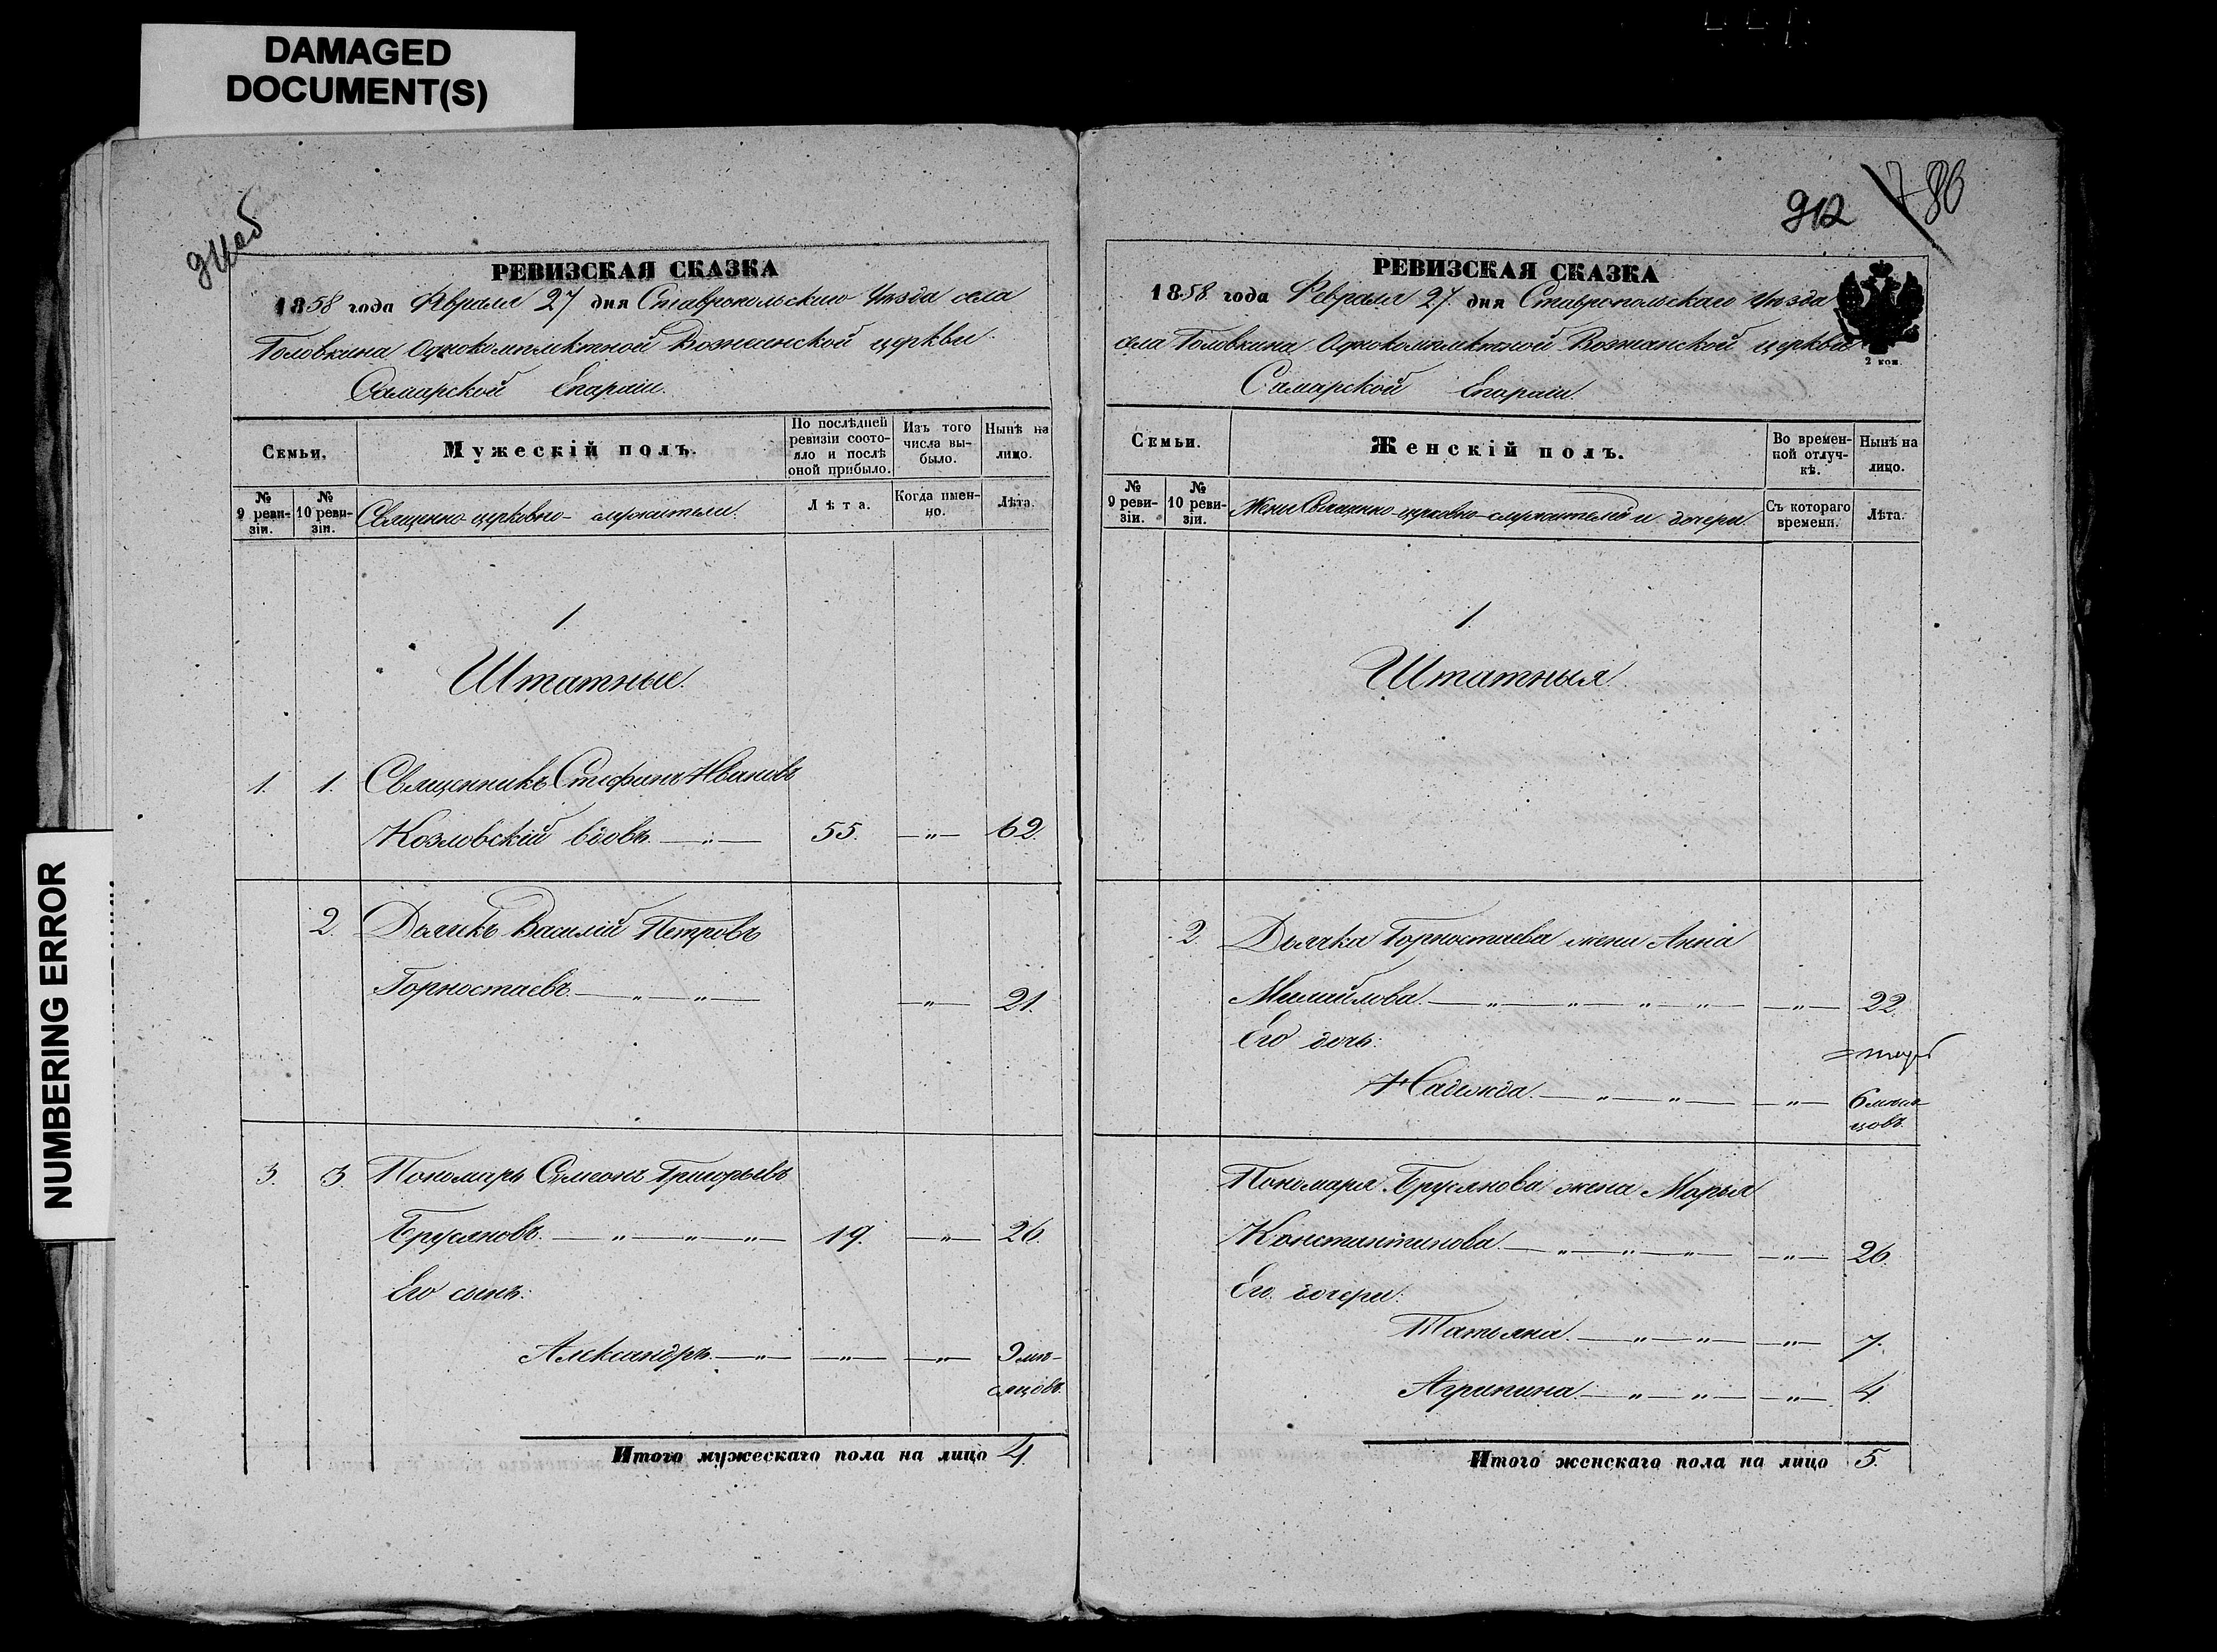 DAMAGED
DOCUMENT(S)
NUMBERING ERROR
911об
РЕВИЗСКАЯ СКАЗКА
1858 года Февраля 27 дня Ставропольскаго Уѣзда села
Головкина Однокомплектной Вознесенской церкви
Самарской Епархіи.
Семьи.
Мужескій полъ.
По послѣдней
ревизіи состо-
яло и послѣ
оной прибыло.
Изъ того
числа вы-
было.
Нынѣ на
лицо.
№
9 реви-
зіи.
№
10 реви-
зіи.
Священно-церковно-служители.
Лѣта.
Когда имен-
но.
Лѣта.
1
Штатные.
1. 1. Священникъ Стефанъ Ивановъ
Козловскій вдовъ. —„— 55. —„— 62.
2. Дьячекъ Василій Петровъ
Горностаевъ. —„—„— —„— 21.
3. 3. Пономарь Симеонъ Григорьевъ
Брусяновъ. —„—„—„— 19. —„— 26.
Его сынъ:
Александръ. —„— —„— —„— 9 мѣ-
сяцовъ.
Итого мужескаго пола на лицо 4.
912 780
РЕВИЗСКАЯ СКАЗКА
1858 года Февраля 27 дня Ставропольскаго Уѣзда
села Головкина Однокомплектной Вознесенской церкви
2 коп.
Самарской Епархіи.
Семьи.
Женскій полъ.
Во времен-
ной отлуч-
кѣ.
Нынѣ на
лицо.
№
9 реви-
зіи.
№
10 реви-
зіи.
Жены Священно-церковно-служителей и дочери.
Съ котораго
времени.
Лѣта.
1.
Штатныя.
2. Дьячка Горностаева жена Анна
Михайлова. —„—„—„—„— —„— 22.
Его дочь:
Надежда. —„—„— —„— 6 мѣся-
цовъ.
Пономаря Брусянова жена Марья
Константинова. —„—„—„— —„— 26.
Его дочери:
Татьяна. —„—„— —„— 7.
Агрипина. —„—„— —„— 4.
Итого женскаго пола на лицо 5.